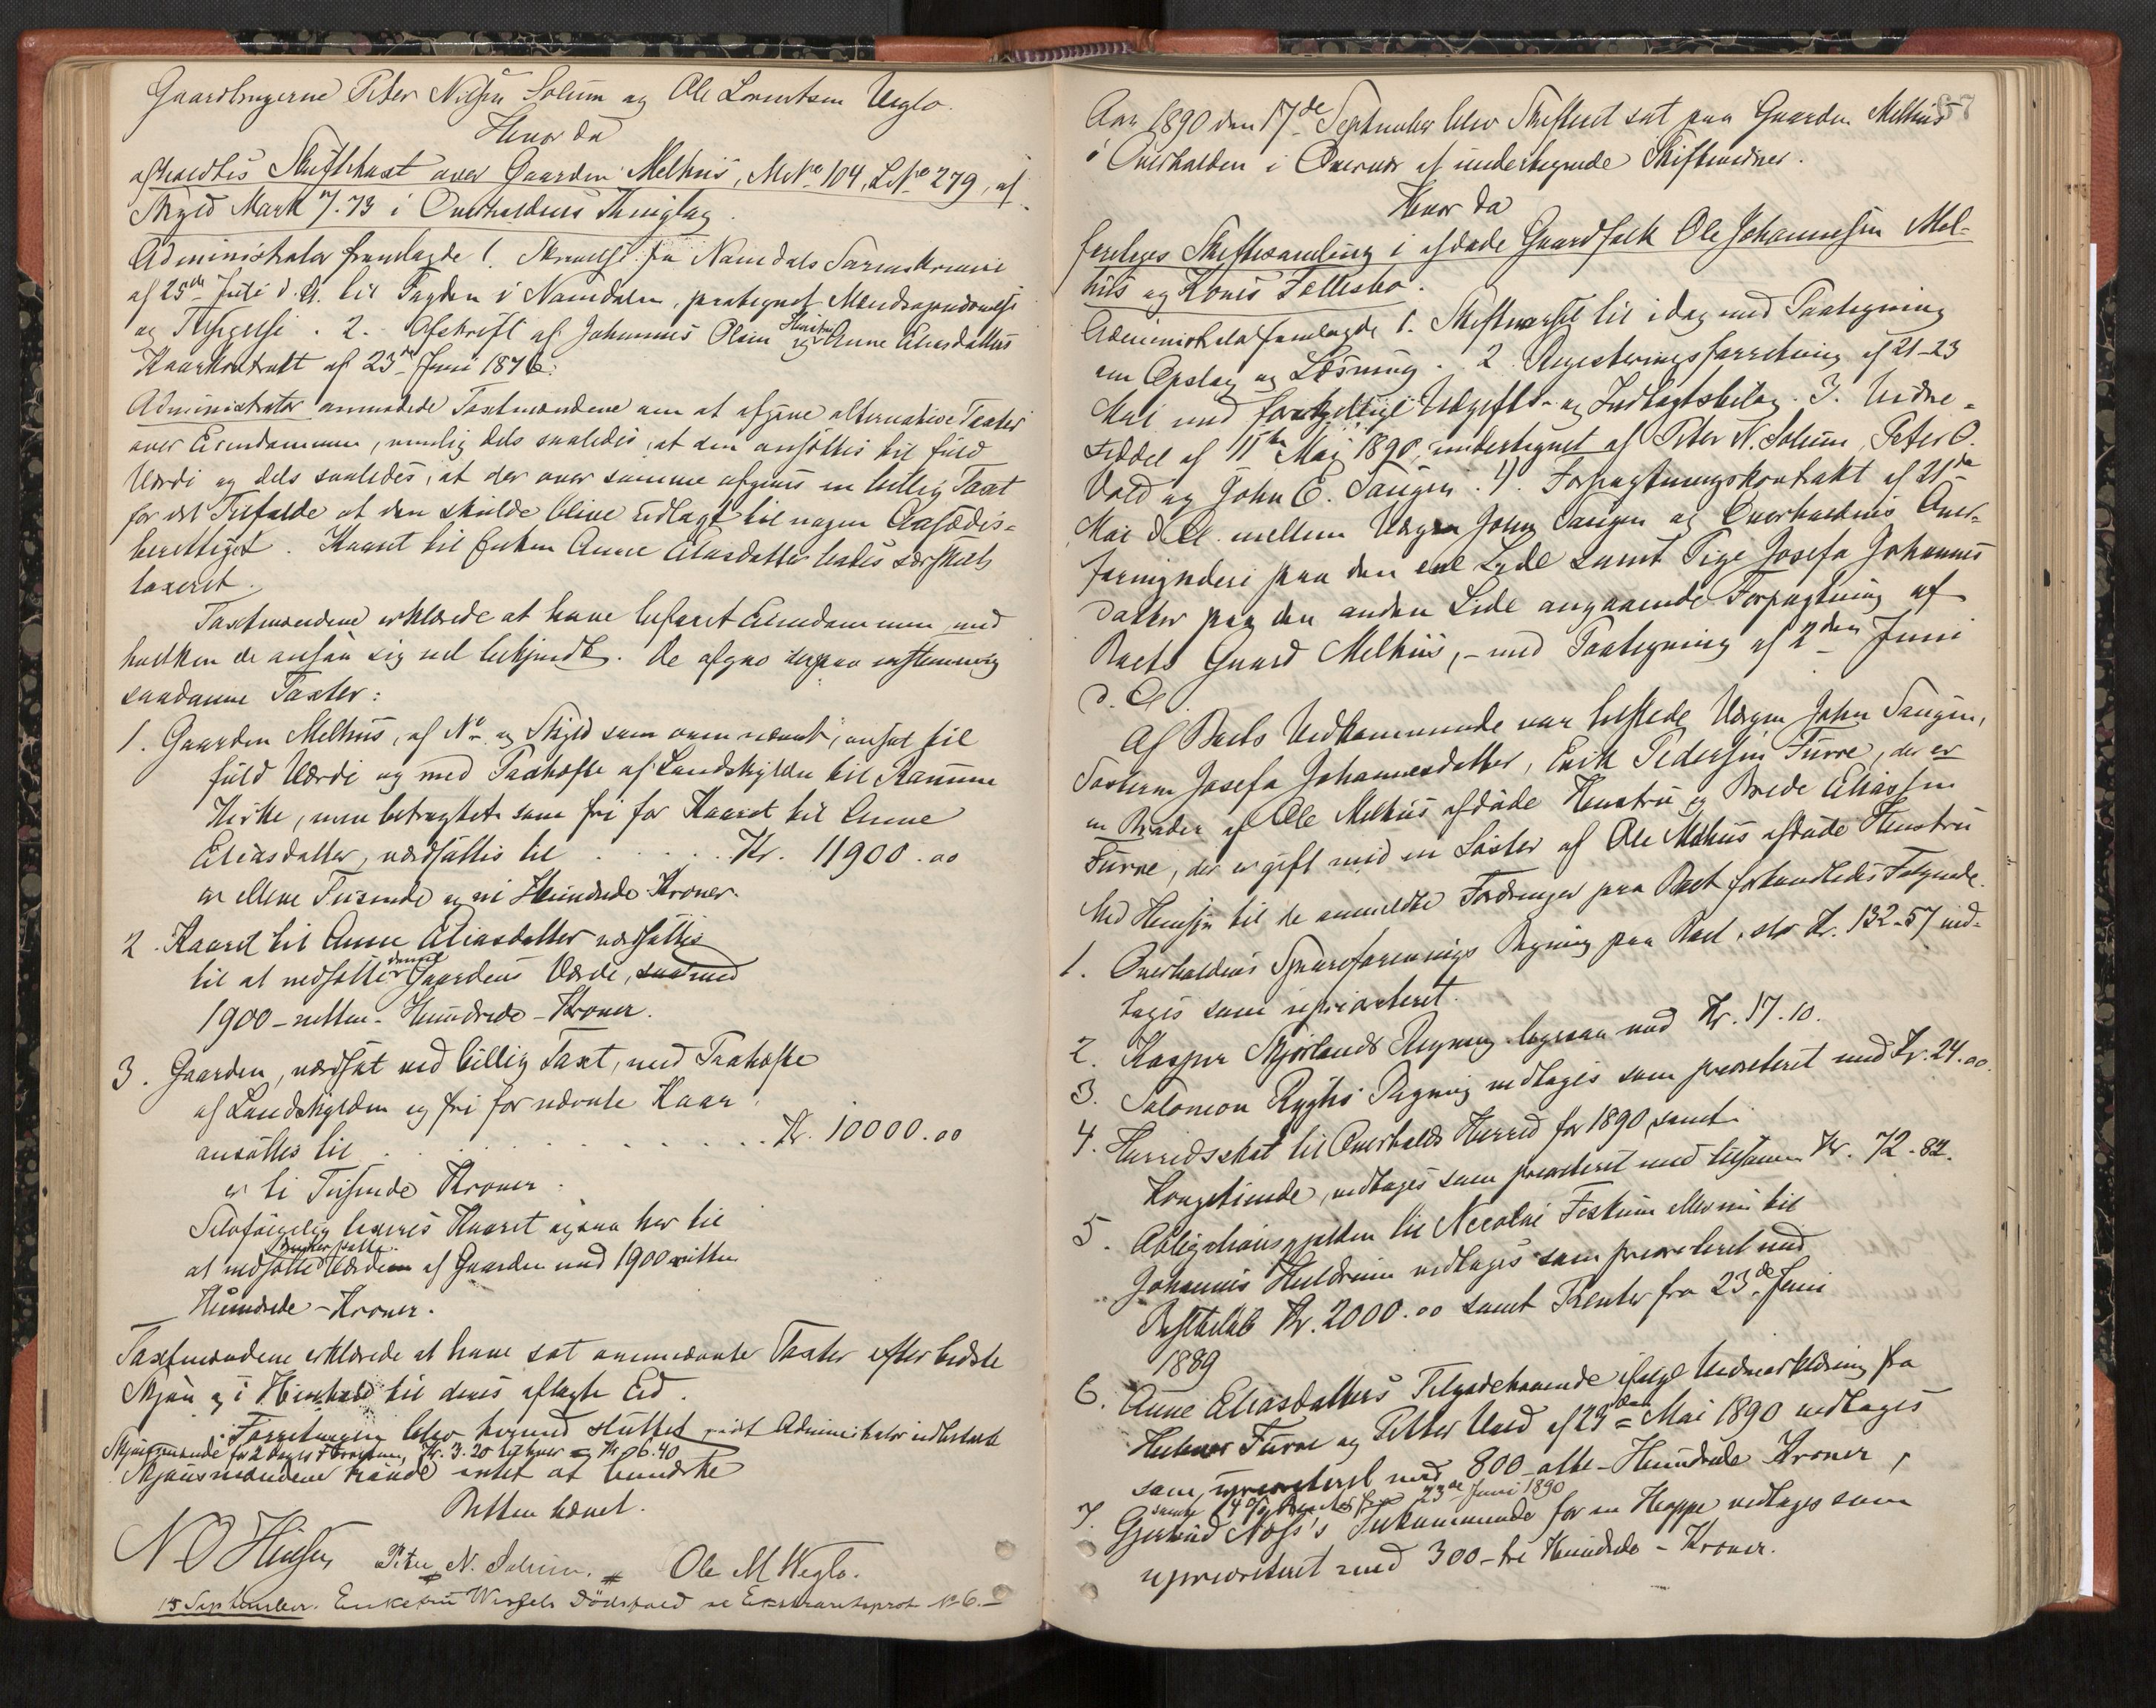 Gaardbrugerne Peter Nilsen Solum og Ole Lorentsen Veglo.
Hvor da
afholdtes Skiftetaxt over Gaarden Melhus, MNo 104, LNo 279, af
Skyld Mark 7.73 i Overhaldens Thinglag.
Administrator fremlagde 1. Skrivelse fra Namdals Sorenskriveri
af 25de Juli d. A. til Fogden i Namdalen, paategnet Mændsopnævnelse
og 2. Afskrift af Johannes Olsen og Hustru Anne Eliasdatters
Kaarkontrakt af 23de Juni 1876.
Administrator anmodede Taxtmændene om at afgive alternative Taxter
over Eiendommen, nemlig dels saaledes, at den ansættes til fuld
Værdi og dels saaledes, at der over samme afgives en billig Taxt
for det Tilfælde at den skulde blive udlagt til nogen Aasædes-
berettiget. Kaaret til Enken Anne Eliasdatter bedes særskilt
taxeret.
Taxtmændene erklærede at have befaret Eiendommen med
hvilken de ansaa sig vel bekjendt. De afgav derpaa enstemmig
saadanne Taxter:
1. Gaarden Melhus, af No og Skyld som oven nævnt, ansat til
fuld Værdi og med Paahefte af Landskylden til Ranum
Kirke, men betragtet som fri for Kaaret til Anne
Eliasdatter, værdsættes til . . . . . Kr. 11900.00
er elleve Tusinde og ni Hundrede Kroner.
2. Kaaret til Anne Eliasdatter værdsættes
til at nedsætte denne Gaardens Værdi, saa med
1900 - nitten - Hundrede - Kroner.
3. Gaarden, værdsat ved billig Taxt, med Paahefte
af Landskylden og fri for nævnte Kaar
ansættes til . . . . . . . . . . . Kr. 10000.00
er ti Tusinde Kroner.
Selvfølgelig taxeres Kaaret ogsaa her til
at nedsætte Værdien af Gaarden med 1900 nitten
Hundrede - Kroner.
Taxtmændene erklærede at have sat ovennævnte Taxter efter bedste
Skjøn og i Henhold til deres aflagte Ed.
Forretningen blev hermed sluttet, idet Administrator udbetalte
Skjønsmændene for 2 Dages Forretning, Kr. 3.20 til hver = Kr. 6.40
Skjønsmændene havde intet at bemærke
Retten hævet.
Peter N. Solum. Ole M Veglo.
15 September. Enkefru Wessels Dødsfald se Extraretsprot. No 6.

Aar 1890 den 17de September blev Skifteret sat paa Gaarden Melhus
i Overhalden i Overvær af undertegnede Skiftevidner.
Hvor da
foretoges Skiftesamling i afdøde Gaardfolk Ole Johannesen Mel-
hus og Kones Fællesbo.
Administrator fremlagde 1. Skiftevarsel til idag med Paategning
om Opslag og Læsning. 2. Registreringsforretning af 21-23
Mai med Udgifts- og Indtægtsbilag. 3. Vidne-
seddel af 11te Mai 1890, undertegnet af Peter N. Solum, Peter O.
Vold og John E. Saugen. 4. Forpagtningskontrakt af 21de
Mai d. A. mellem Værgen John Saugen og Overhaldens Over-
formynderi paa den ene Side samt Pige Josefa Johannes
datter paa den anden Side angaaende Forpagtning af
Boets Gaard Melhus, - med Paategning af 2den Juni
d. A.
Af Boets Vedkommende var tilstede Værgen John Saugen,
Søsteren Josefa Johannesdatter, Erik Pedersen Furre, der er
en Broder af Ole Melhus afdøde Hustru og Brede Eliassen
Furre, der er gift med en Søster af Ole Melhus afdøde Hustru
Med Hensyn til de anmeldte Fordringer paa Boet forhandledes Følgende.
1. Overhaldens Spareforenings Regning paa Boet, stor Kr. 132-57 ved-
tages som uprioriteret.
2. Kasper Skjørlands Regning ligesaa med Kr. 17.10.
3. Salomon Ryghs Regning vedtages som prioriteret med Kr. 24.00.
4. Herredsskat til Overhalds Herred for 1890, samt
Kongetiende, vedtages som prioriteret med tilsammen Kr. 72-82.
5. Obligationsgjælden til Nicolai Feskum eller nu til
Johannes Huldreim vedtages som prioriteret med
Restbeløb Kr. 2000.00 samt Renter fra 23de Juni
1889
6. Anne Eliasdatters Tilgodehavende ifølge Vidneerklæring fra
Furre og Petter Vold af 29de Mai 1890 vedtages
som uprioriteret med 800 - otte - Hundrede Kroner,
samt 4 % Renter fra 23de Juni 1890
7. Gjertrud Næss's Tilkommende for en Hoppe vedtages som
uprioriteret med 300 - tre Hundrede - Kroner.